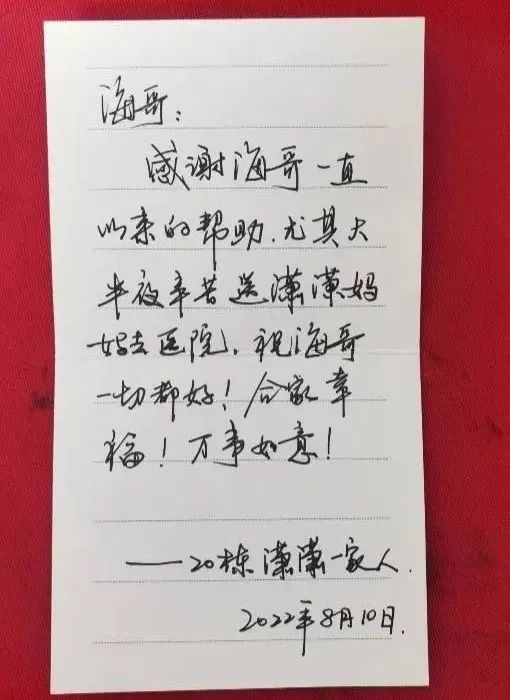 海哥：
感谢海哥一直
以来的帮助.尤其大
半夜辛苦送潇潇妈
妈去医院.祝海哥
一切都好！合家幸
福！万事如意！
——20栋潇潇一家人.
2022年8月10日.